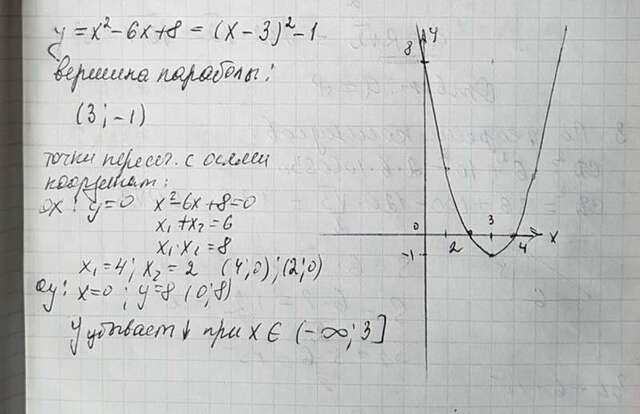 y = x² - 6x + 8 = (x - 3)² - 1
вершина параболы:
(3; -1)
точки пересеч. с осями
координат:
ox: y = 0 x² - 6x + 8 = 0
x₁ + x₂ = 6
x₁ · x₂ = 8
x₁ = 4; x₂ = 2 (4; 0); (2; 0)
oy: x = 0; y = 8 (0; 8)
y убывает ↓ при x ∈ (-∞; 3]
y
8
0
2
3
4
x
-1